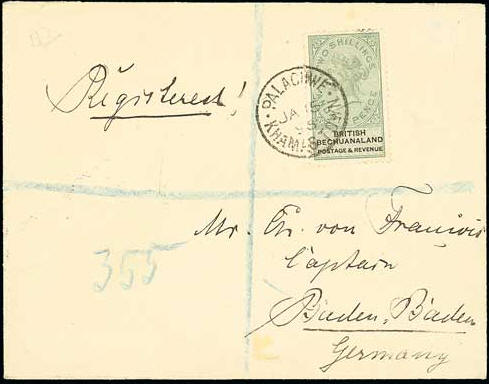 Registered!
TWO SHILLINGS
PENCE
BRITISH
BECHUANALAND
POSTAGE & REVENUE
PALACHWE
JA 15
95
KHAMA'S
355
Mr. Ch. von François
Captain
Baden-Baden
Germany